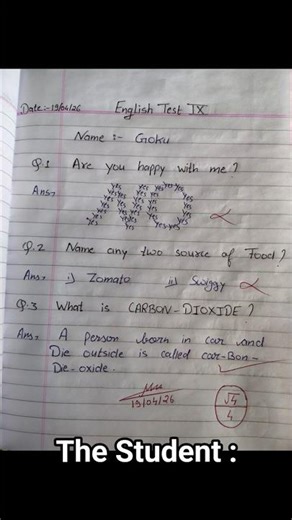 Date:- 19/04/26 English Test IX
Name :- Goku
Q.1 Are you happy with me?
Ans, yes yes yes yes yes yes yes yes yes yes yes yes yes yes yes yes yes yes yes yes yes yes yes yes yes yes yes yes
Q.2 Name any two source of Food?
Ans, i) Zomato ii) Swiggy
Q.3 What is CARBON-DIOXIDE?
Ans, A person born in car and
Die outside is called car-Bon-
De-oxide.
19/04/26
√4
4
The Student :